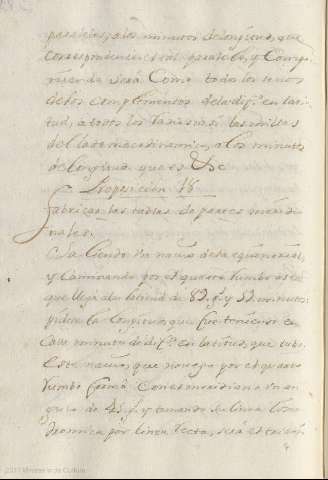 paralelos, a los minutos de longitud, que
corresponden en tal paralelo, y Compo-
niendo será Como todos los senos
de los complementos de la dif.ª en lati-
tud, a todos los radios; assi las millas
del lado mecodinamico, a los minutos
de longitud que es &c
Proposicion 18.
fabricar las tablas de partes meridi-
onales.
Saliendo Una nao desde la equinocial,
y Caminando por el quarto rumbo asta
que llega a la latitud de 89. g.s y 59 minutos:
pidese la longitud, que fue teniendo en
cada minuto de dif.ª en latitud, que tubo.
Esta nao, que navega por el quarto
rumbo forma Con el meridiano Un an-
gulo de 45 g.s y tomando su linea loxo-
dromica por linea recta, será el trian-
2011 Ministerio de Cultura